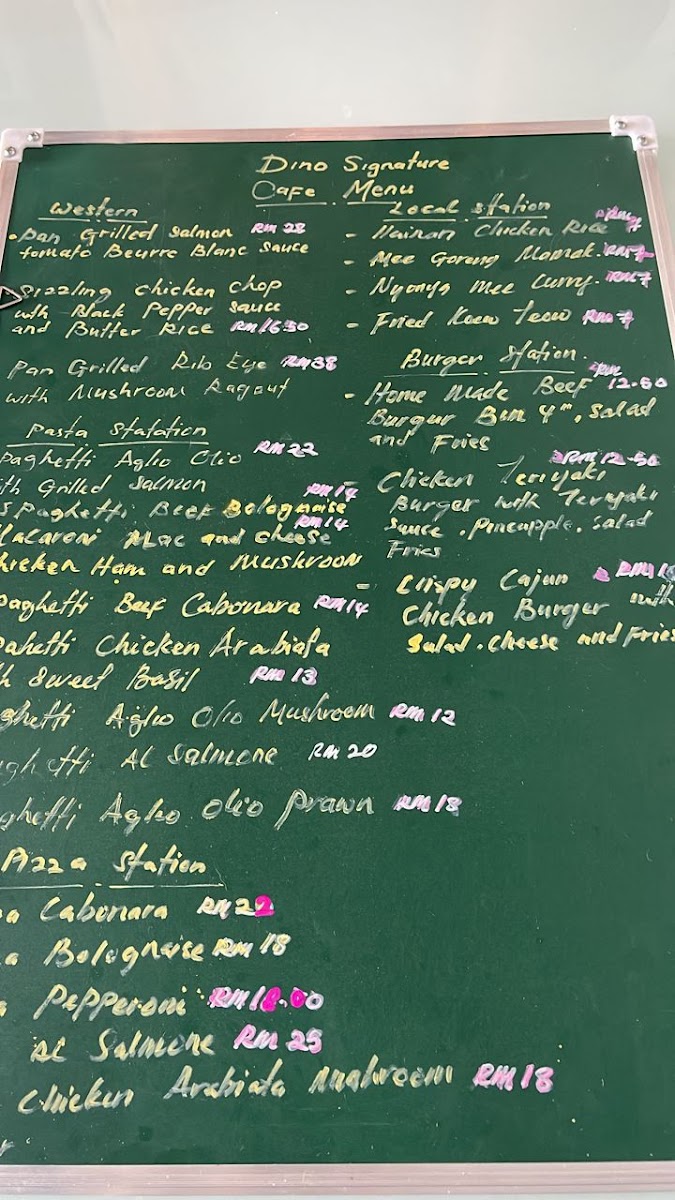 Dino Signature
Cafe Menu
Western
Pan Grilled Salmon RM 28
tomato Beurre Blanc Sauce
Sizzling Chicken Chop
with Black Pepper Sauce
and Butter Rice RM 16.50
Pan Grilled Rib Eye RM38
with Mushroom Ragout
Pasta Statation
paghetti Aglio Olio RM 22
th Grilled Salmon
Spaghetti Beef Bolognaise RM14
Macaroni Mac and cheese RM14
hicken Ham and Mushroom
paghetti Beef Cabonara RM14
pahetti Chicken Arabiata
h Sweet Basil RM 13
ghetti Aglio Olio Mushroom RM 12
ghetti Al Salmone RM 20
ghetti Aglio Olio Prawn RM 18
Pizza Station
a Cabonara RM22
a Bolognaise RM 18
a Pepperoni RM18.00
Al Salmone RM 25
Chicken Arabiata Mushroom RM 18
Local Station
- Hainan Chicken Rice RM7
- Mee Goreng Mamak. RM7
- Nyonya Mee Curry. RM7
- Fried Koew Teow RM7
Burger Station
- Home Made Beef RM 12.50
Burgur Bun 4", Salad
and Fries
Chicken Teriyaki RM12.50
Burger with Teriyaki
Sauce, Pineapple, Salad
Fries
- Crispy Cajun
Chicken Burger with
Salad. Cheese and Fries